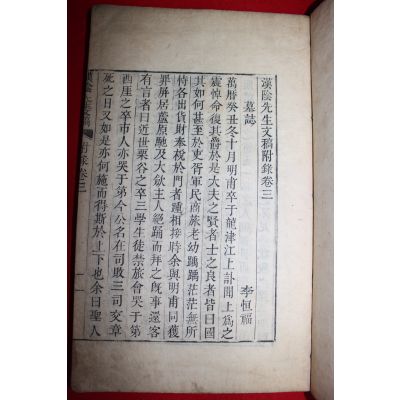 漢陰先生文稿附錄卷三
墓誌
李恒福
萬曆癸丑冬十月明甫卒于龍津江上訃聞上爲之
震悼命復其爵於是大夫之賢者士之良者皆曰國
其如何甚至於吏胥軍民商旅老幼踽踽茫茫無所
恃各出貨財奉梲於門者踵相接時余與明甫同獲
罪屛居蘆原馳及大欲主人絕踊而拜之旣事還客
有言者曰近世栗谷之卒三學生徒禁旅會哭于第
西厓之卒市人亦哭于第今公名在司敗三司交章
死之日又如是亦何施而得斯於上下也余曰聖人
附錄卷三
一